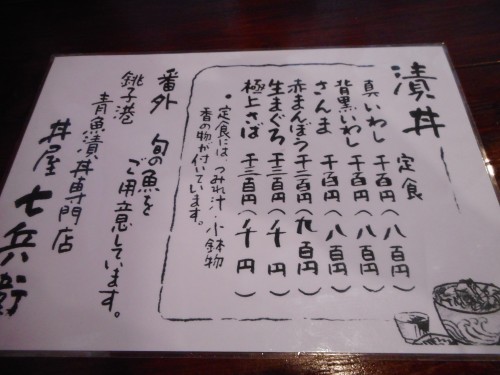 漬丼
定食
真いわし 千百円(八百円)
背黒いわし 千百円(八百円)
さんま 千百円(八百円)
赤まんぼう 千二百円(九百円)
生まぐろ 千三百円(千円)
極上さば 千三百円(千円)
・定食には、つみれ汁・小鉢物
香の物が付いています。
番外 旬の魚を
ご用意しています。
銚子港
青魚漬丼専門店
丼屋 七兵衛